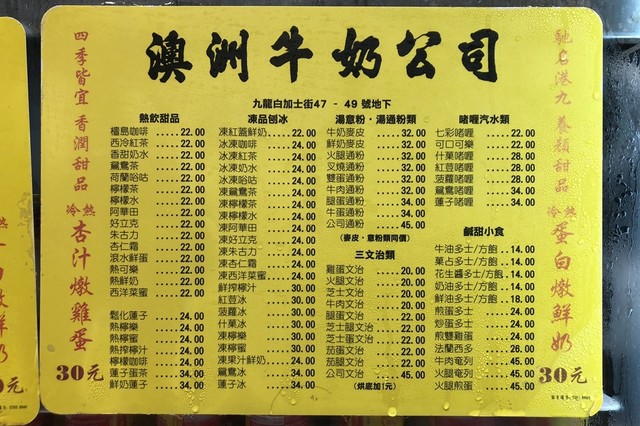 澳洲牛奶公司
九龍白加士街47 - 49號地下
四季皆宜 香潤甜品
冷熱
杏汁燉雞蛋
30元
熱飲甜品
檀島咖啡 .....22.00
西冷紅茶 .....22.00
香甜奶水 .....22.00
鴛鴦茶 .....22.00
荷蘭哈咕 .....22.00
檸檬茶 .....22.00
檸檬水 .....22.00
阿華田 .....22.00
好立克 .....22.00
朱古力 .....22.00
杏仁霜 .....22.00
滾水鮮蛋 .....22.00
熱可樂 .....22.00
熱鮮奶 .....22.00
西洋菜蜜 .....22.00
鬆化蓮子 .....24.00
熱檸樂 .....24.00
熱檸蜜 .....24.00
熱檸汁 .....24.00
檸檬咖啡 .....24.00
蓮子蛋茶 .....34.00
鮮奶蓮子 .....34.00
凍品刨冰
凍紅蓋鮮奶.....22.00
凍咖啡 .....24.00
凍紅茶 .....24.00
凍奶水 .....24.00
凍哈咕 .....24.00
凍鴛鴦 .....24.00
凍檸茶 .....24.00
凍檸水 .....24.00
凍阿華田 .....24.00
凍好立克 .....24.00
凍朱古力 .....24.00
凍杏仁霜 .....24.00
凍西洋菜蜜 .....24.00
鮮搾檸汁 .....30.00
紅荳冰 .....30.00
菠蘿冰 .....30.00
什菓冰 .....30.00
凍檸樂 .....30.00
凍檸蜜 .....30.00
凍果汁鮮奶.....34.00
鴛鴦冰 .....34.00
蓮子冰 .....34.00
湯意粉·湯通粉類
牛奶麥皮 .....32.00
鮮奶麥皮 .....32.00
火腿通粉 .....32.00
叉燒通粉 .....32.00
雙蛋通粉 .....32.00
牛肉通粉 .....32.00
腿蛋通粉 .....34.00
牛蛋通粉 .....34.00
公司通粉 .....45.00
(麥皮·意粉類同價)
三文治類
雞蛋文治 .....20.00
火腿文治 .....20.00
芝士文治 .....20.00
牛肉文治 .....20.00
腿蛋文治 .....22.00
芝士腿文治 .....22.00
芝士蛋文治 .....22.00
茄蛋文治 .....22.00
茄腿文治 .....22.00
公司文治 .....45.00
(烘底加1元)
啫喱汽水類
七彩啫喱 .....22.00
可口可樂 .....22.00
什菓啫喱 .....28.00
紅荳啫喱 .....28.00
菠蘿啫喱 .....28.00
鴛鴦啫喱 .....34.00
蓮子啫喱 .....34.00
鹹甜小食
牛油多士/方飽..14.00
菓占多士/方飽..14.00
花生醬多士/方飽..14.00
奶油多士/方飽..14.00
鮮油多士/方飽..18.00
煎蛋多士 .....24.00
炒蛋多士 .....24.00
煎雙雞蛋 .....24.00
法蘭西多 .....26.00
牛肉奄列 .....45.00
火腿奄列 .....45.00
火腿煎蛋 .....45.00
馳名港九 養顏甜品
冷熱
蛋白燉鮮奶
30元